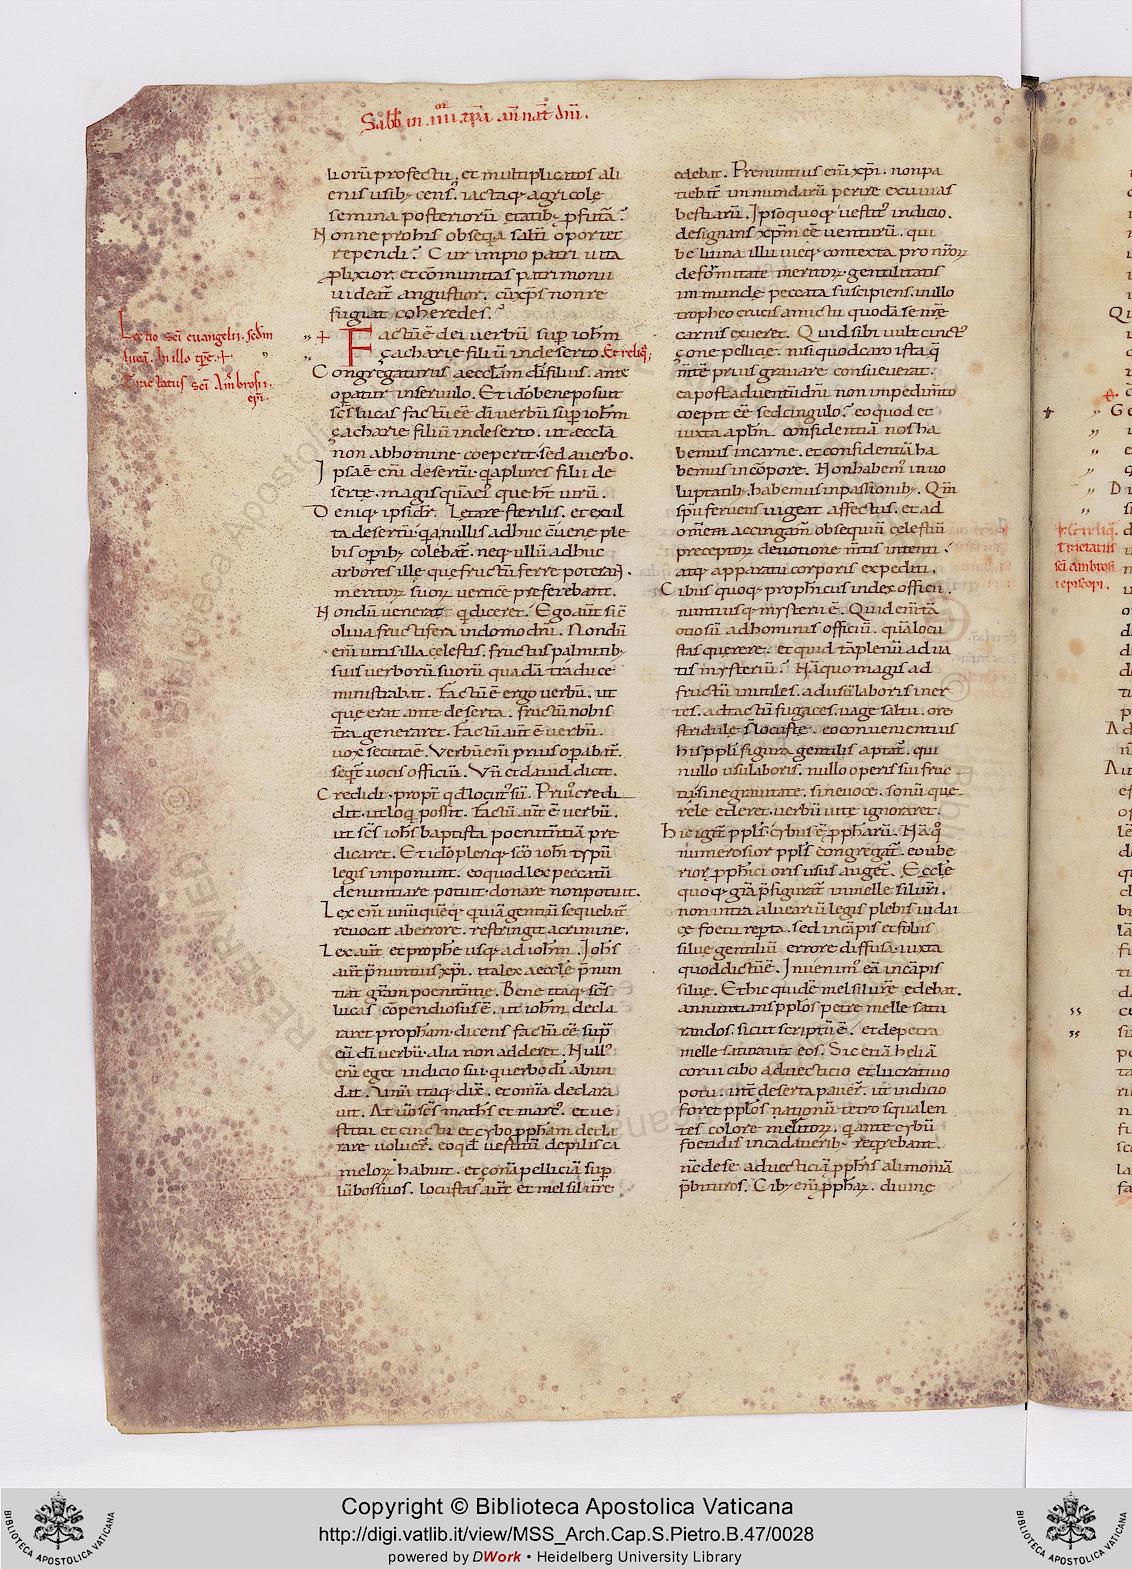 Sabb in .iiii. tpa añ nat dñi.
liorũ profectu. et multiplicatos ali
enis usib; cens᾽. iactaq; agricolę
semina posteriorũ etatib; p̱futa.
Nonne probis obseq̱a saltĩ oportet
rependi? Cur impio patri uita
plixior. et cõmunitas patrimonii
uideat̃ angustior. cũ xp̃s non re
fugiat coheredes?
Lectio sc̃i euangelii. sc̃dm
lucã. In illo tp̃r. +
Tractatus sc̃i Ambrosii.
ep̃i.
+ Factũ ẽ dei uerbũ sup̱ ioh̃m
çacharię filiũ in deserto. Et reliq̃;
Congregaturus aeccl̃am dĩ filius. ante
op̱atur in seruulo. Et idõ bene posuit
sc̃s lucas. factũ eẽ dĩ uerbũ sup̱ ioh̃m
çacharię filiũ in deserto. ut aeccl̃a
non ab homine coeperit. sed a uerbo.
Ipsa ẽ eñi desertũ. q̱a plures filii de
sertę. magis quã ei᾽ que h̃t uirũ.
Deniq; ipsi dr̃. Lętare sterilis. et exul
ta desertũ. q̱a nullis adhuc cũuenę ple
bis op̱ib; colebat̃. neq; ullũ adhuc
arbores illę. que fructũ ferre poterant.
meritoꝝ suoꝝ uerticẽ pręferebant.
Nondũ uenerat q̱ diceret. Ego aut̃ sic̃
oliua fructifera in domo dñi. Nondũ
eñi uitis illa celestis. fructus palmitib;
suis uerborũ suorũ quadã traduce
ministrabat. Factũ ẽ ergo uerbũ. ut
que erat ante deserta. fructũ nobis
t̃ra generaret. Factũ aut̃ ẽ uerbũ.
uox secuta ẽ. Verbũ eñi prius op̱abat̃.
seq̱t uocis officiũ. Vñ et dauid dicit.
Credidi. propt̃ qđ locut᾽ sũ. Pri᾽ credi
dit. ut loq̱ possit. Factũ aut̃ ẽ uerbũ.
ut sc̃s ioh̃s baptista poenitẽtiã pre
dicaret. Et idõ pleriq; sc̃o ioh̃i typũ
legis imponunt. eo quod lex peccatũ
denuntiare potuit. donare non potuit.
Lex eñi unũ quẽq; q̱ uiã gentiũ sequebat̃.
reuocat ab errore. restringit a crimine.
Lex aut̃ et prophę usq; ad ioh̃m. Ioh̃s
aut̃ p̃nuntius xp̃i. ita lex aecclę p̃nun
tiat grãm poenitẽtię. Bene itaq; sc̃s
lucas cõpendiosus ẽ. ut ioh̃m decla
raret proph̃am. dicens factũ eẽ sup̱
eũ dĩ uerbũ. alia non adderet. Null᾽
eñi eget indicio sui. q̱ uerbo dĩ abun
dat. Vnũ itaq; dix̃. et om̃ia declara
uit. At ũo sc̃s math̃s et marc᾽. et ue
stitu et cinctu et cybo p̱pħam decla
rare uoluer̃. eo qđ uestitũ de pilis ca
meloꝝ habuit. et çonã pelliciã sup̱
lũbos suos. locustas aut̃ et mel siluẽre
edebat. Prenuntius eñi xp̃i. non pa
tiebat̃ inmundarũ perire exuuias
bestiarũ. Ipso quoq; uestit᾽ indicio.
designans xp̃m eẽ uenturũ. qui
beluina illuuieq; contexta pro nr̃oꝝ
deformitate meritoꝝ. gentilitatis
inmundę peccata suscipiens. in illo
tropheo crucis amictũ quodã se nr̃ę
carnis exueret. Quid sibi uult cinct᾽
çonę pellicię. nisi quod caro ista q̱
m̃tẽ prius grauare consueuerat.
ea post aduentũ dñi non impedim̃to
coepit eẽ sed cingulo? eo quod et
iuxta apl̃m. confidentiã nos ha
bemus in carne. et confidentiã ha
bemus in corpore. Non habem᾽ in uo
luptatib;. habemus in passionib;. Qm̃
sp̃u feruens uigeat affectus. et ad
om̃em accingam᾽ obsequiũ celestiũ
preceptoꝝ deuotione m̃tis intenti.
atq; apparatu corporis expediti.
Cibus quoq; proph̃icus index officii.
nuntiusq; mysterii ẽ. Quid eñi tã
otiosũ. ad hominis officiũ. quã locu
stas querere. et quid tã plenũ ad ua
tis mysteriũ? Nã quo magis ad
fructũ inutiles. ad usũ laboris iner
tes. ad tactũ fugaces. uagę saltu. ore
stridulę s̃ locustę. eo conuenientius
his pp̃li figura gentilis aptat̃. qui
nullo usu laboris. nullo operis sui fruc
tu. sine grauitate. sine uoce. sonũ que
rele ederet. uerbũ uitę ignoraret.
Hic igit̃ pp̃l᾽s. cybus ẽ p̱pħarũ. Nã q᾽
numerosior pp̃l᾽s congregat̃. eo ube
rior p̱pħici oris usus auget̃. Ecclę
quoq; grã p̃figurat̃ in melle siluẽri.
non intra aluearũ legis plebis iudai
cę foetu rep̱ta. sed in cãpis et foliis
siluę gentiliũ errore diffusa. iuxta
quod dictũ ẽ. Inuenim᾽ eã in cãpis
siluę. Et hic quidẽ mel siluẽre edebat.
annuntians pp̃los petrę melle satu
randos. sicut scriptũ ẽ. et de petra
melle saturauit eos. Sic etiã heliã
corui cibo aduecticio et lucratiuo
potu. int̃ deserta pauer̃. ut indicio
foret pp̃los nationũ tetro squalen
tes colore meritoꝝ. q̱ ante cybũ
foetidis in cadauerib; req̱rebant.
nc̃ de se aduecticiã p̱pħis alimoniã
p̃bituros. Cib; eñi p̱pħaꝝ. diuinę
Copyright © Biblioteca Apostolica Vaticana
http://digi.vatlib.it/view/MSS_Arch.Cap.S.Pietro.B.47/0028
powered by DWork • Heidelberg University Library
BIBLIOTECA APOSTOLICA VATICANA
BIBLIOTECA APOSTOLICA VATICANA